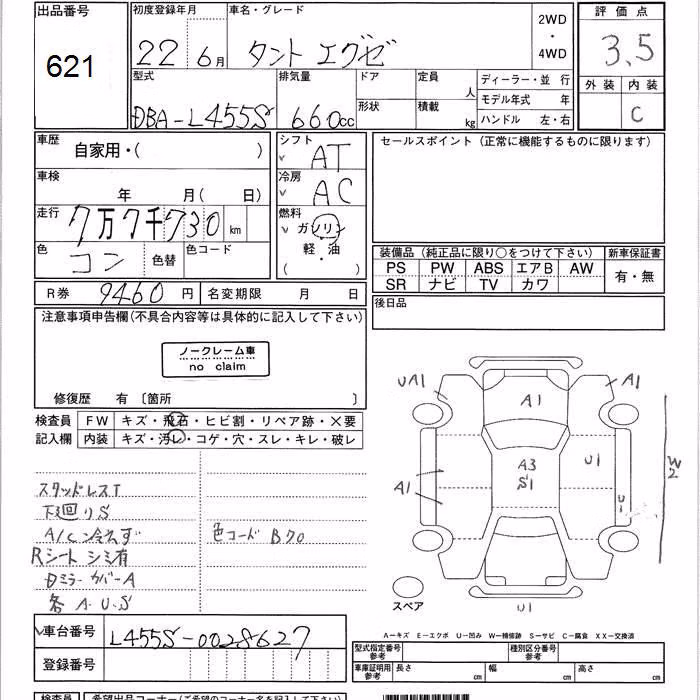 出品番号
621
初度登録年月
22年6月
車名・グレード
タント エグゼ
2WD
・
4WD
評価点
3.5
外装 内装
C
型式
DBA-L455S
排気量
660cc
ドア
形状
定員
人
積載
kg
ディーラー・並 行
モデル年式 年
ハンドル 左・右
車歴
自家用・( )
車検
年 月( 日)
走行
7万7千730km
色
コン
色替
色コード
シフト
AT
冷房
AC
燃料
ガソリン
軽・油
( ・ )
セールスポイント (正常に機能するものに限ります)
装備品 (純正品に限り○をつけて下さい)
新車保証書
PS PW ABS エアB AW
SR ナビ TV カワ
有・無
R券 9460円
名変期限 月 日
後日品
注意事項申告欄(不具合内容等は具体的に記入して下さい)
ノークレーム車
no claim
修復歴 有 〔箇所 〕
検査員
記入欄
FW キズ・飛石・ヒビ割・リペア跡・×要
内装 キズ・汚レ・コゲ・穴・スレ・キレ・破レ
スタッドレスT
下廻りS
A/C冷えず
色コード B70
Rシート シミ有
Dミラーカバー A
各 A.U.S
UA1
A1
A1
A3
S1
U1
A1
U1
W2
U1
スペア
車台番号
L455S-0028627
登録番号
A―キズ E―エクボ U―凹み W―補修跡 S―サビ C―腐食 XX―交換済
型式指定番号
参考
種別区分番号
参考
車庫証明用
参考
長さ cm
幅 cm
高さ cm
検査員
希望出品コーナー(ご希望のコーナー名を記入下さい)